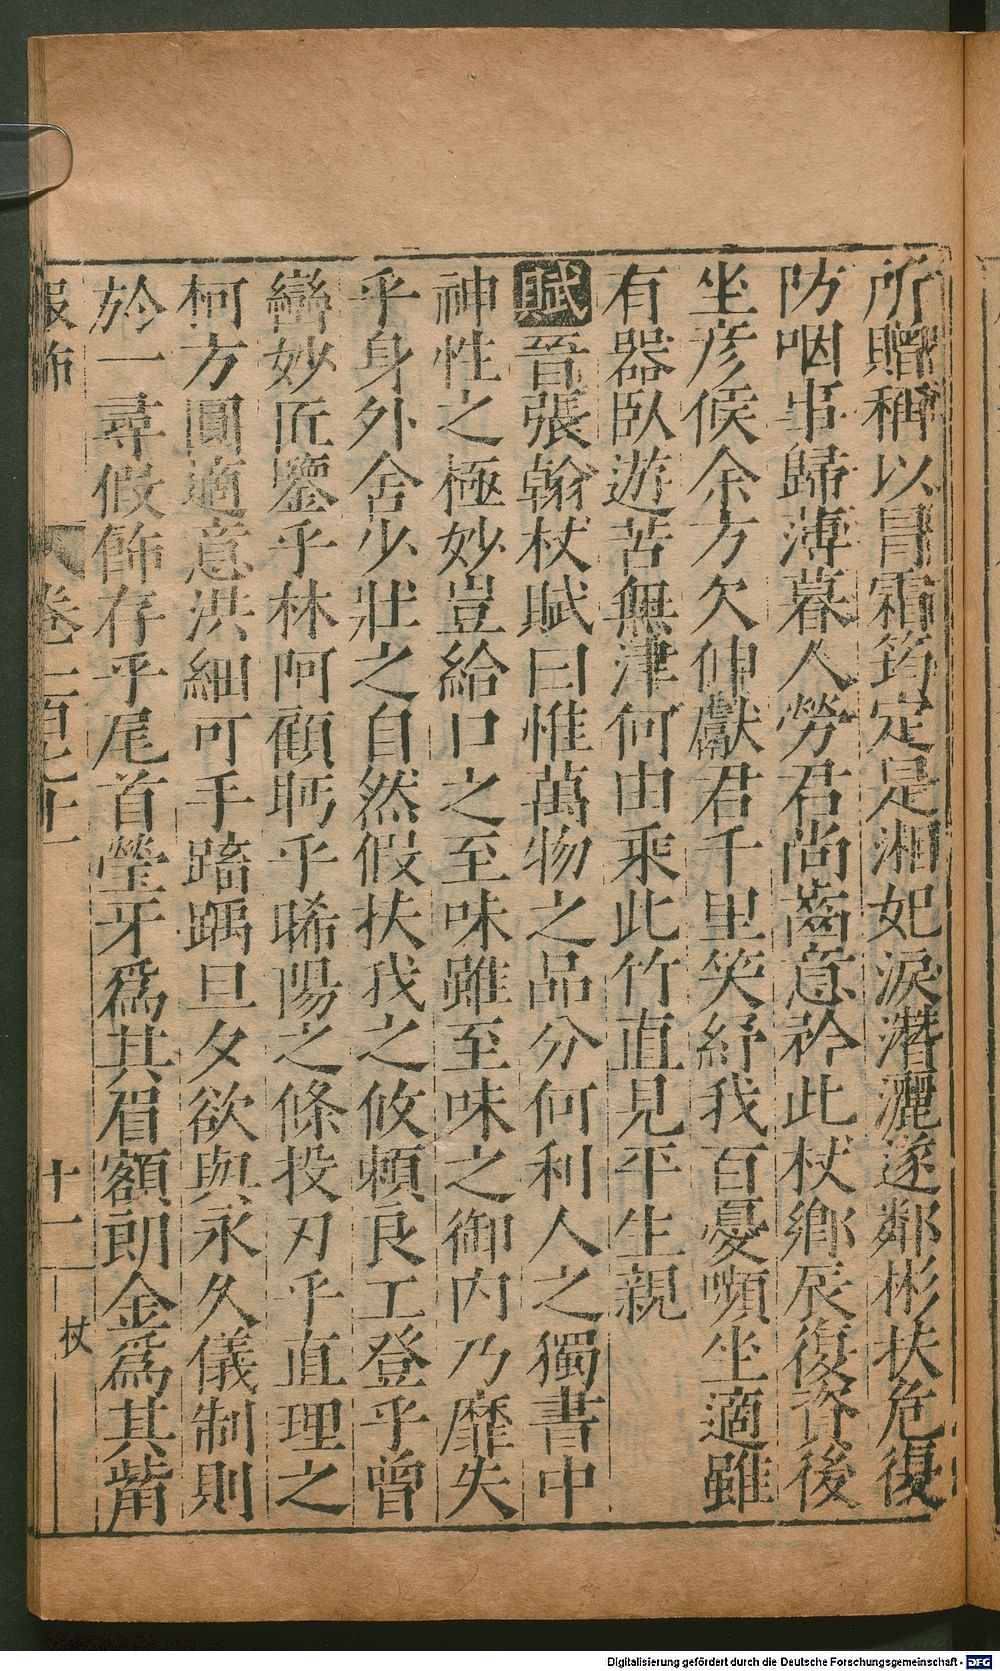 所贈稱以冒霜筠定是湘妃淚潛灑遂鄰彬扶危復
防咽事歸薄暮人勞君尚齒意矜此杖鄉辰復資後
坐彦候余方欠伸獻君千里笑紓我百憂嚬坐適雖
有器臥遊苦無津何由乘此竹直見平生親
賦晉張翰杖賦曰惟萬物之品分何利人之獨書中
神性之極妙豈給口之至味雖至味之御内乃靡失
乎身外舍少壯之自然假扶我之攸賴良工登乎曾
巒妙匠鑒乎林阿顧眄乎晞陽之條投刃乎直理之
柯方圓適意洪細可手踦踽旦夕欲與永久儀制則
於一尋假飾存乎尾首瑩牙爲其眉額朗金爲其觜
服飾 卷二百七十一 十一 杖
Digitalisierung gefördert durch die Deutsche Forschungsgemeinschaft - DFG